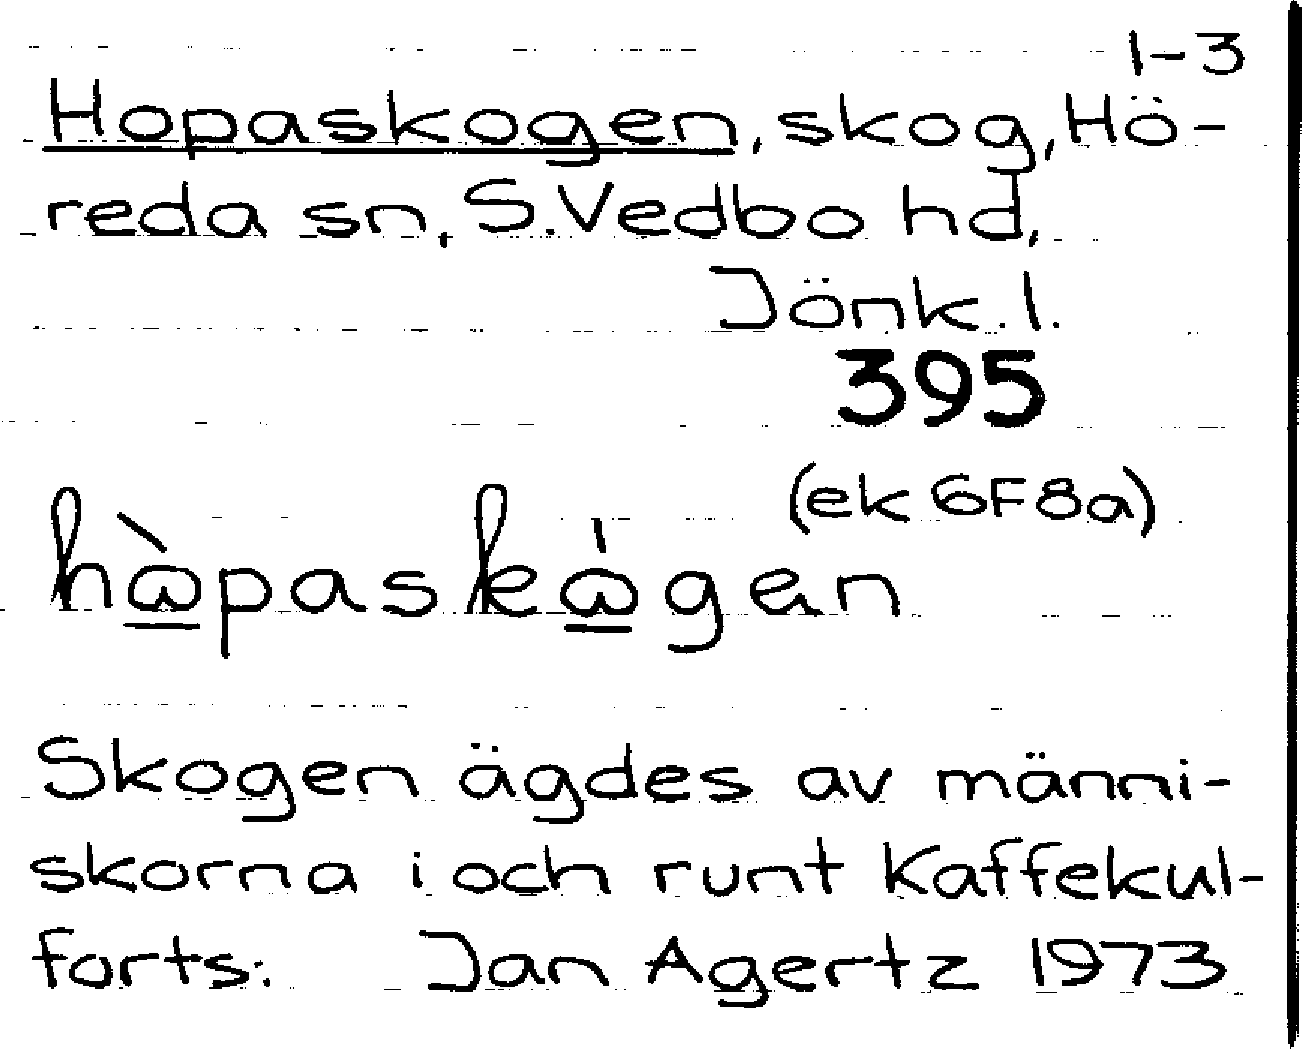 1-3
Hopaskogen, skog, Hö-
reda sn, S.Vedbo hd,
Jönk.l.
395
(ek 6F8a)
hὼ̠paskώ̠gen
Skogen ägdes av männi-
skorna i och runt Kaffekul-
forts. Jan Agertz 1973